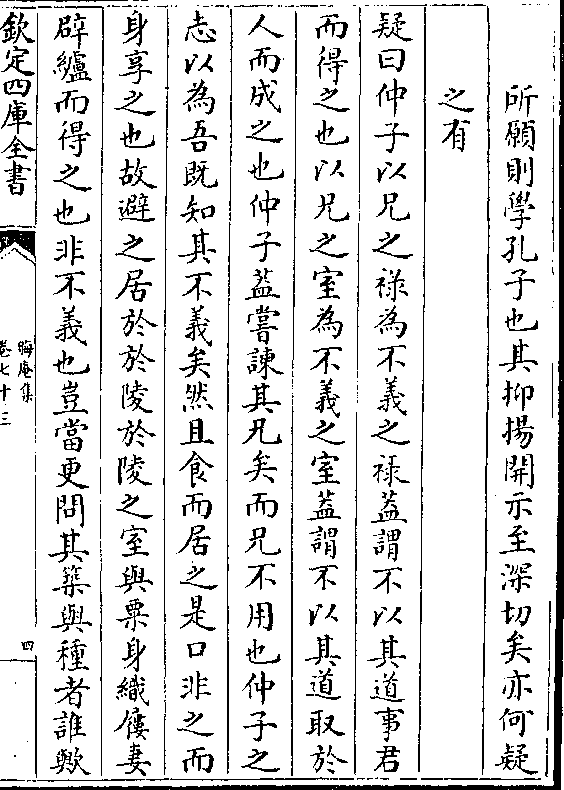 所願則學孔子也其抑揚開示至深切矣亦何疑
之有
疑曰仲子以兄之禄為不義之禄葢謂不以其道事君
而得之也以兄之室為不義之室葢謂不以其道取於
人而成之也仲子葢嘗諫其兄矣而兄不用也仲子之
志以為吾既知其不義矣然且食而居之是口非之而
身享之也故避之居於於陵於陵之室與粟身織屨妻
辟纑而得之也非不義也豈當更問其築與種者誰歟
欽定四庫全書
晦庵集
卷七十三
四